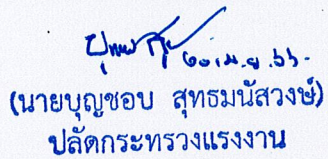 ๒๐ เม.ย. ๖๖
(นายบุญชอบ สุทธมนัสวงษ์)
ปลัดกระทรวงแรงงาน